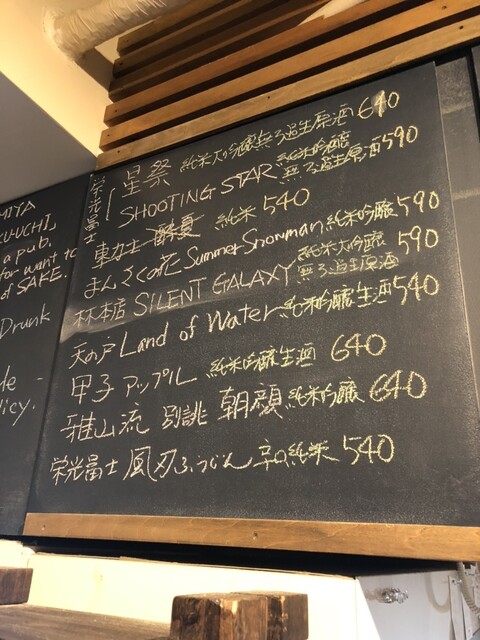 MIYA
KU-UCHI,
a pub.
for want to
of SAKE.
Drunk
licy.
栄光冨士
星祭 純米大吟醸無ろ過生原酒 640
SHOOTING STAR 純米吟醸 無ろ過生原酒 590
東力士 純米 540
まんさくの花 Summer Snowman 純米吟醸 590
林本店 SILENT GALAXY 純米大吟醸 無ろ過生原酒 590
天の戸 Land of Water 純米吟醸生酒 540
甲子 アップル 純米吟醸生酒 640
雅山流 別誂 朝顔 純米吟醸 640
栄光冨士 風刃ふうじん 辛口純米 540